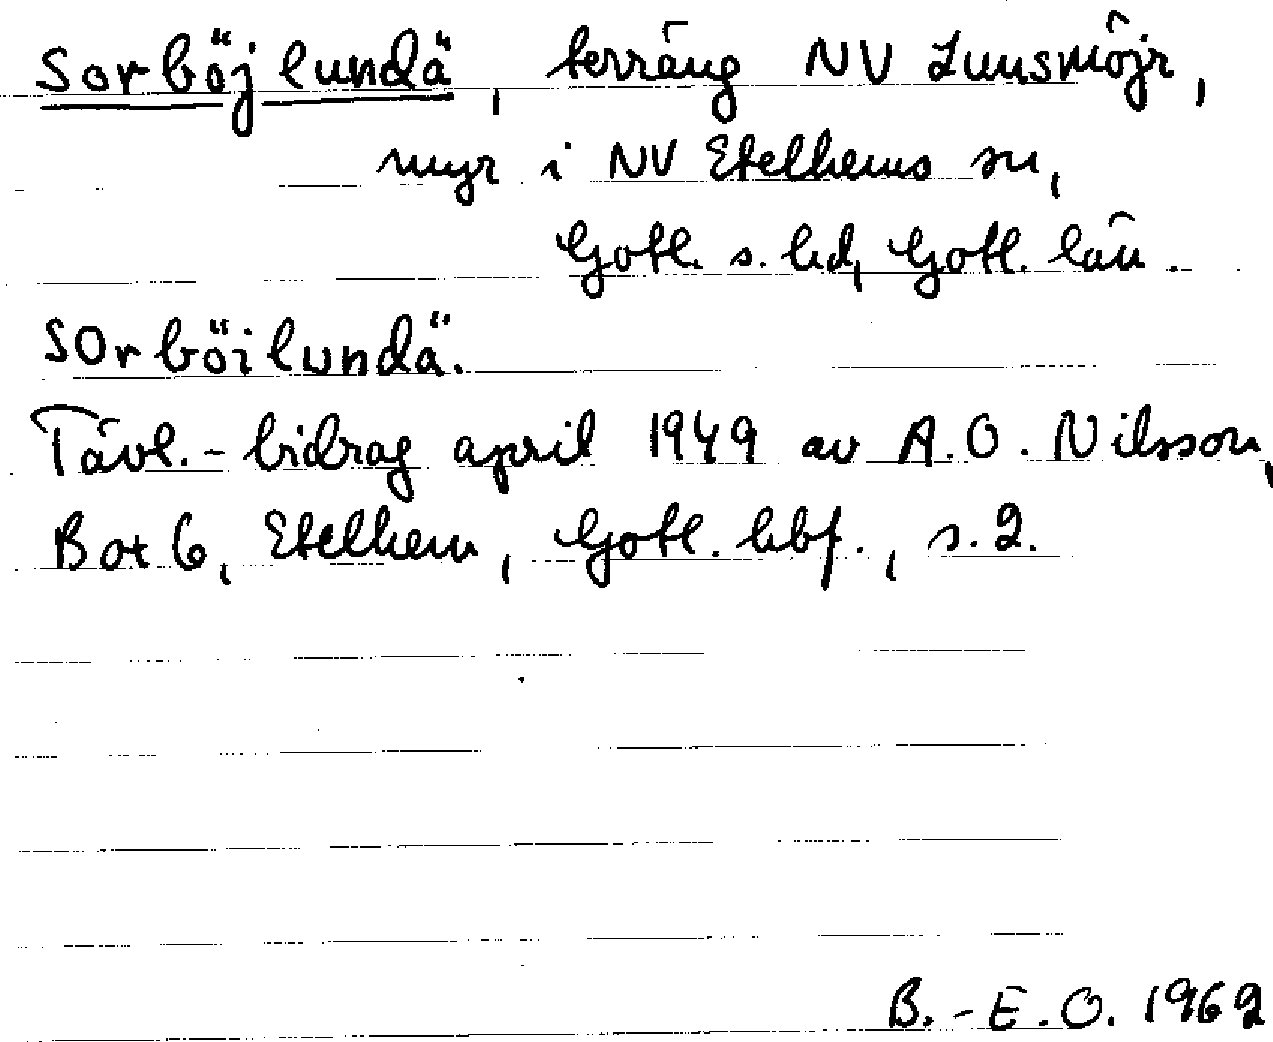 Sorböjlundä, terräng NV Lunsmöjr,
myr i NV Etelhems sn,
Gotl. s. hd, Gotl. län.
SOrböilundä.
Tävl.-bidrag april 1949 av A.O. Nilsson,
Box 6, Etelhem, Gotl. hbf., s. 2.
B.-E.O. 1969